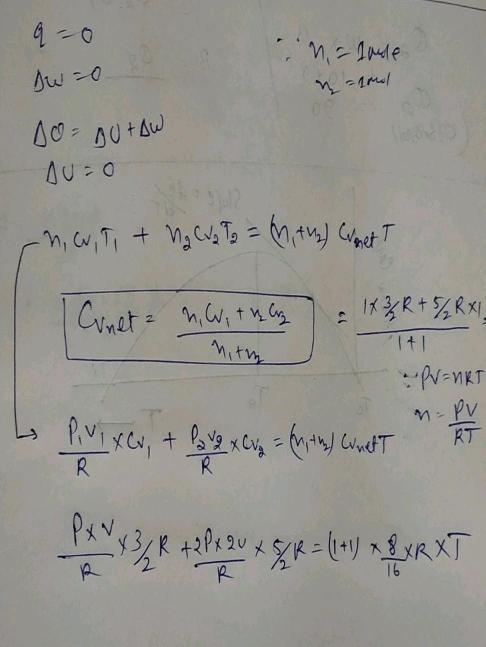 q = 0
∵ n₁ = 1mole
ΔW = 0
n₂ = 1mol
ΔQ = ΔU + ΔW
ΔU = 0
n₁Cv₁T₁ + n₂Cv₂T₂ = (n₁+n₂) Cvnet T
Cvnet = (n₁Cv₁ + n₂Cv₂)/(n₁+n₂) = (1 x 3/2 R + 5/2 R x 1)/(1+1)
∵ PV = nRT
n = PV/RT
P₁V₁/R x Cv₁ + P₂V₂/R x Cv₂ = (n₁+n₂) Cvnet T
PxV/R x 3/2 R + 2Px2V/R x 5/2 R = (1+1) x 8/16 x R x T